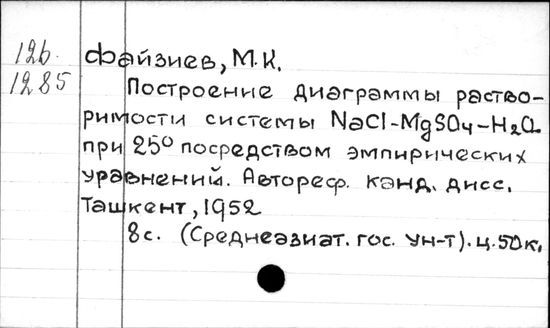 126.
1285
Файзиев, М.К.
Построение диаграммы раство-
римости системы NaCl-MgSO4-H2O
при 25° посредством эмпирических
уравнений. Автореф. канд. дисс.
Ташкент, 1952
8с. (Среднеазиат. гос. ун-т). ц. 50к.